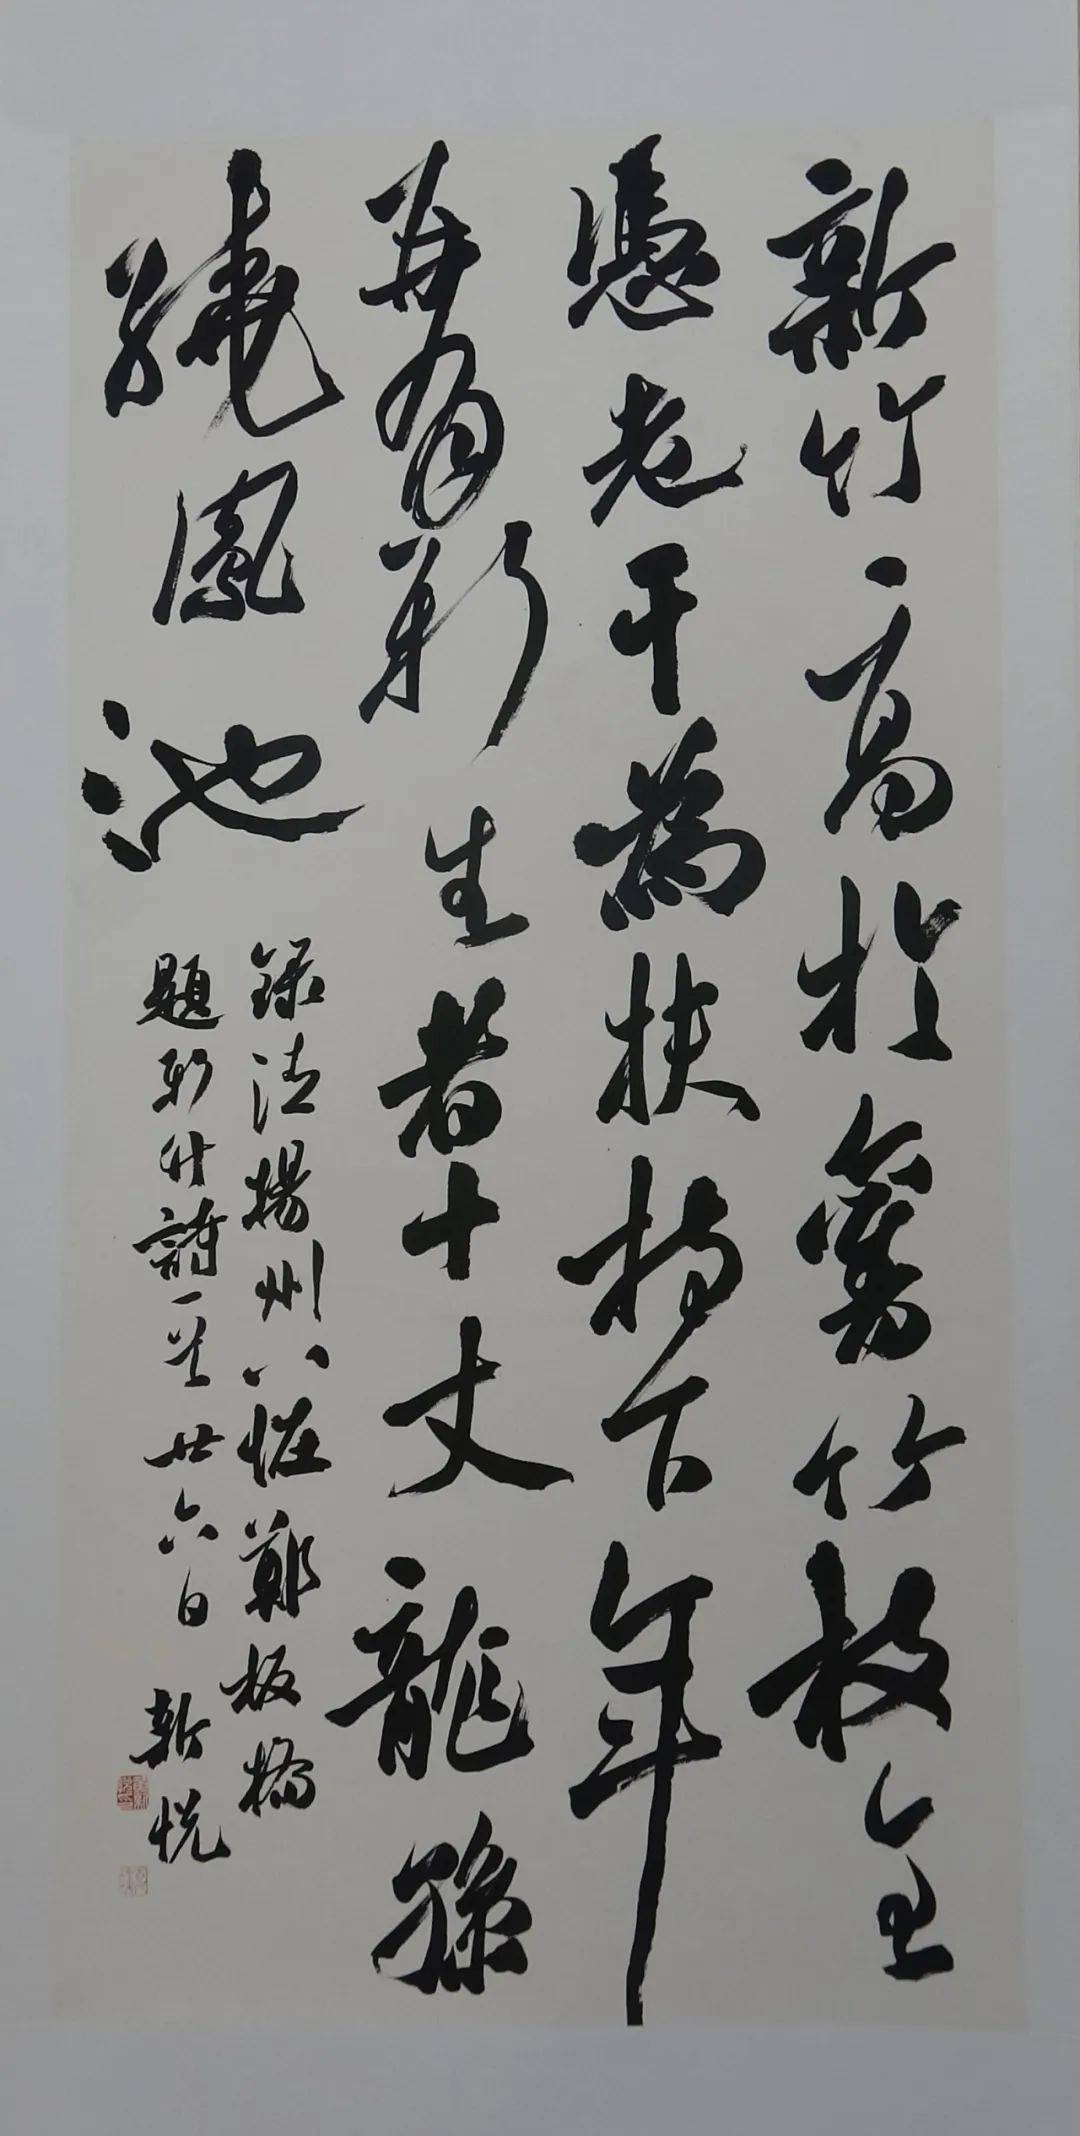 新竹高於舊竹枝全
憑老干為扶持下年
再有新生者十丈龍孫
繞鳳池
錄清揚州八怪鄭板橋
題新竹詩一首廿六日新悅